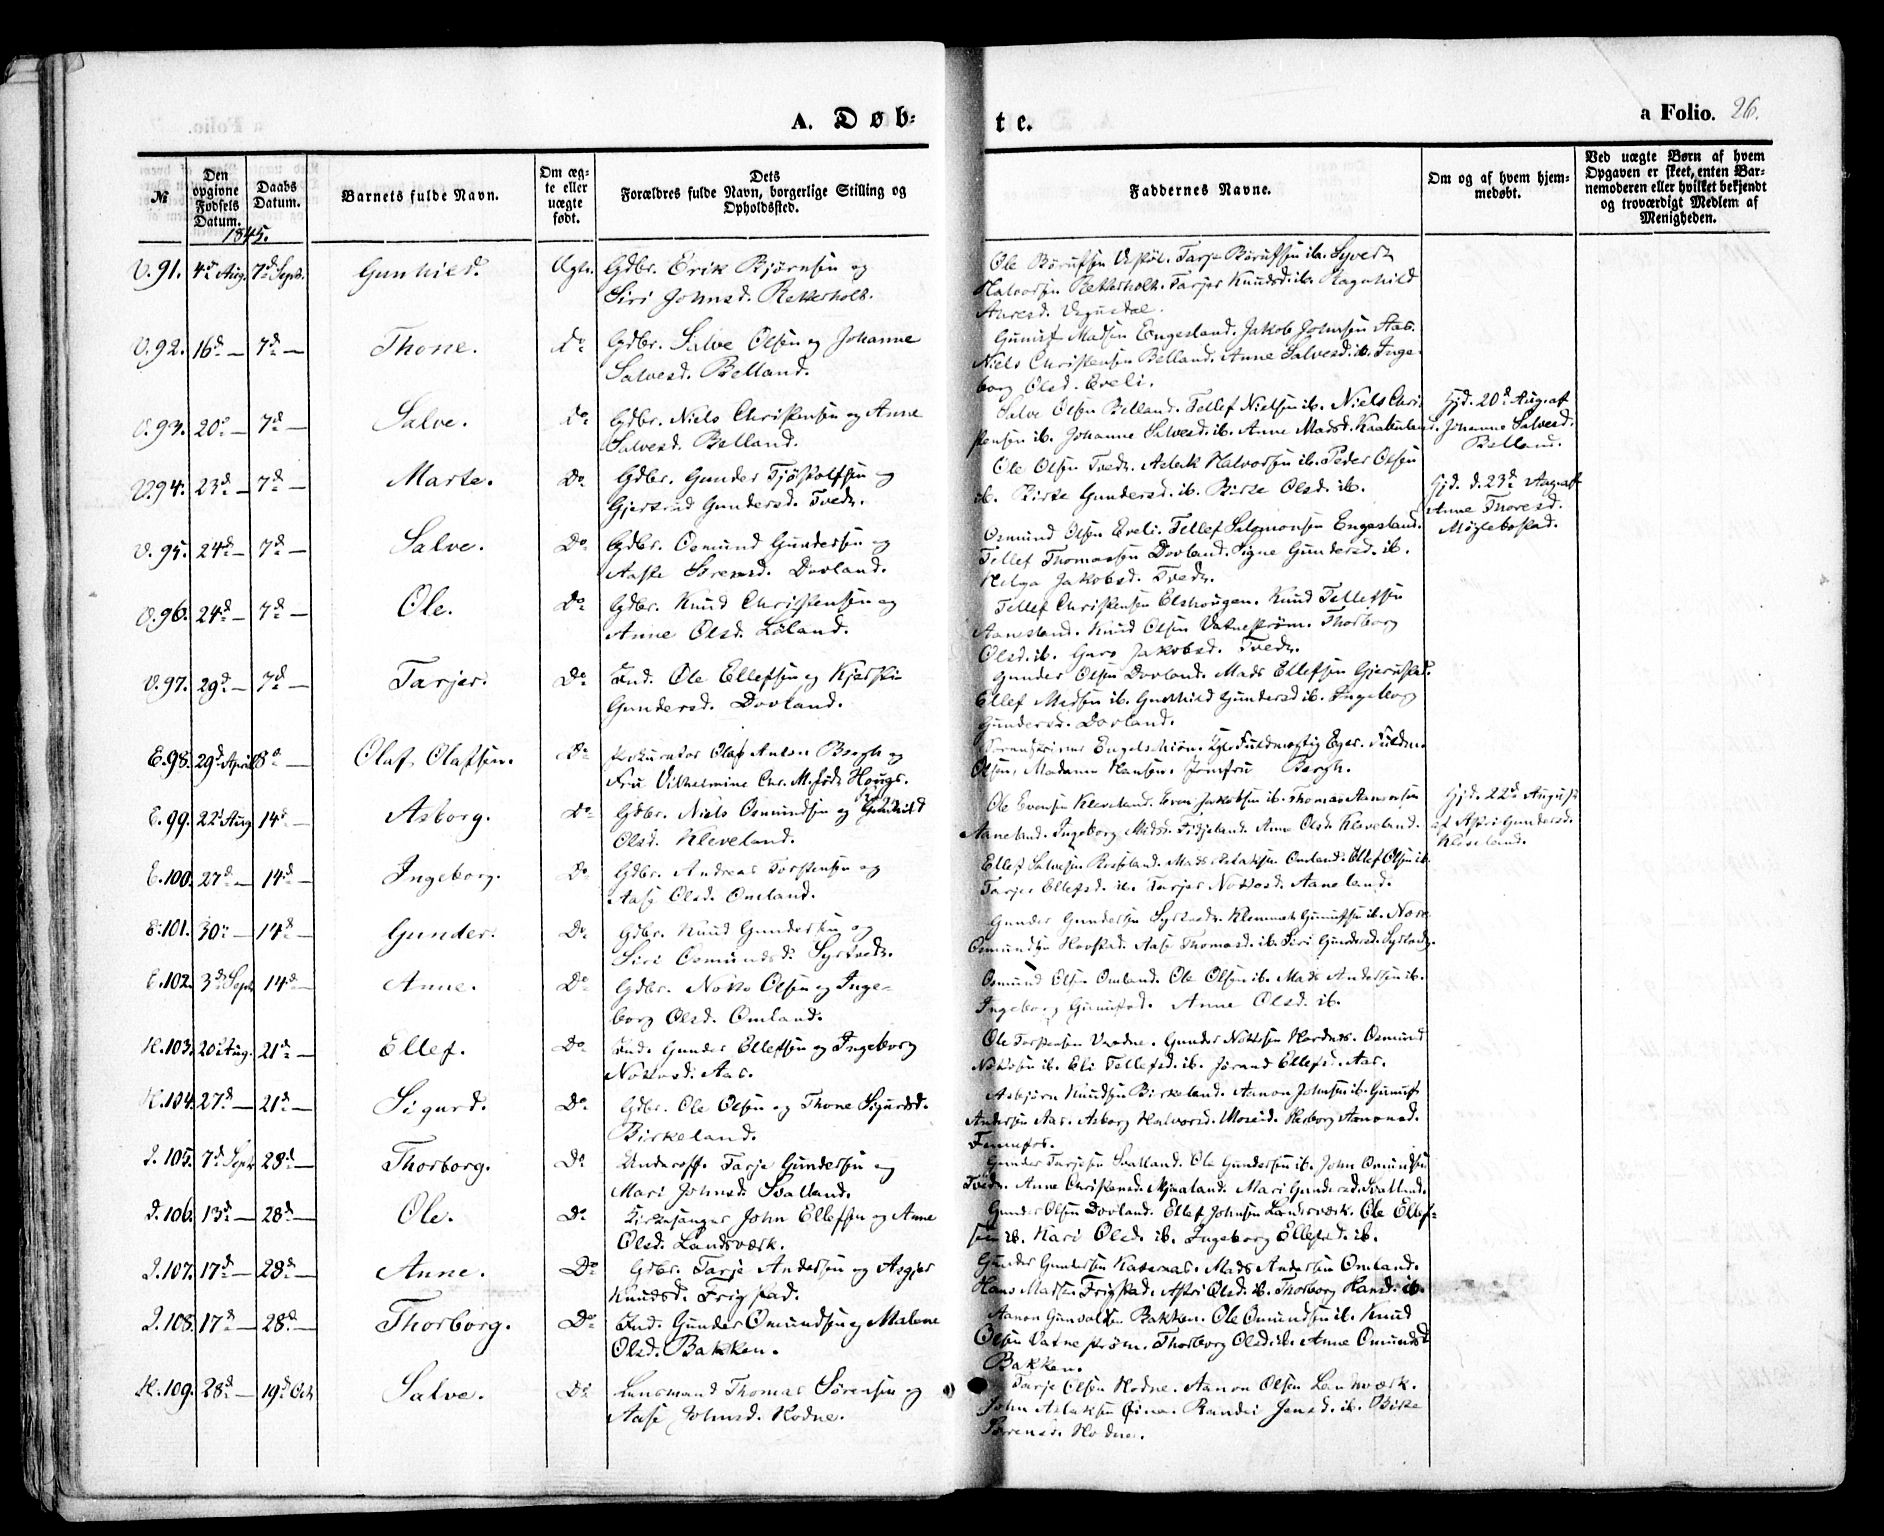 A. Døb=
te.
a Folio. 26.
№
Den opgivne Fødsels Datum.
Daabs Datum.
Barnets fulde Navn.
Om ægte eller uægte født.
Dets Forældres fulde Navn, borgerlige Stilling og Opholdssted.
Faddernes Navne.
Om og af hvem hjemmedøbt.
Ved uægte Børn af hvem Opgaven er skeet, enten Barnemoderen eller hvilket bekjendt og troværdigt Medlem af Menigheden.
1845.
V. 91. 4d Aug. 7d Septb. Gunhild. Ægte. Gdbr. Erik Bjørnsen og
Siri Johnsd. Retterholt.
Halvorsen Retterholt. Tarjer Knudsd. ib. Ragnhild
V. 92. 16d — 7d — Thone. Do Gdbr. Salve Olsen og Johanne
Salvesd. Belland.
Gunuf Madsen Engesland. Jakob Johnsen Aas.
Niels Christensen Belland. Anne Salvesd. ib. Inge-
borg Olsd. Eveli.
V. 93. 20d — 7d — Salve. Do Gdbr. Niels Christensen og Anne
Salvesd. Belland.
Salve Olsen Belland. Tellef Nielsen ib. Niels Chri-
stensen ib. Johanne Salvesd. ib. Anne Madsd.
Hjd. 20d Aug. af
Johanne Salvesd.
Belland.
V. 94. 23d — 7d — Marte. Do Gdbr. Gunder Tjøstolfsen og
Gjertrud Gundersd. Tvedt.
Ole Olsen Tvedt. Aslak Halvorsen ib. Peder Olsen
ib. Birte Gundersd. ib. Birte Olsd. ib.
Hjd. d. 23d Aug. af
Anne Thoresd.
Møglebostad.
V. 95. 24d — 7d — Salve. Do Gdbr. Osmund Gundersen og
Aaste Sørensd. Dovland.
Osmund Olsen Eveli. Tellef Salomonsen Engesland.
Tellef Thomassen Dovland. Signe Gundersd. ib.
Helga Jakobsd. Tvedt.
V. 96. 24d — 7d — Ole. Do Gdbr. Knud Christensen og
Anne Olsd. Løland.
Tellef Christensen Elshougen. Knud Tellefsen
Aanesland. Knud Olsen Vatnestrøm. Thorborg
Olsd. ib. Guro Jakobsd. Tvedt.
V. 97. 29d — 7d — Tarjer. Do Ind. Ole Ellefsen og Kjersti
Gundersd. Dovland.
Gunder Olsen Dovland. Mads Ellefsen Gjerustad.
Ellef Madsen ib. Gunhild Gundersd. ib. Ingeborg
Gundersd. Dovland.
E. 98. 29d April 8d — Olaf Olafsen. Do Prokurator Olaf Anton Bergh og
Fru Vilhelmine Chr. M. født Hougs.
Olsen, Madame Hansen. Jomfru Bergh.
E. 99. 22d Aug 14d — Asborg. Do Gdbr. Niels Osmundsen og Gunhild
Olsd. Kleveland.
Ole Evensen Kleveland. Even Jakobsen ib. Thomas Aanonsen
Aaneland. Ingeborg Madsd. Fidjeland. Anne Olsd. Kleveland.
Hjd. 22d August
af Astri Gundersd.
Kleveland.
E. 100. 27d — 14d — Ingeborg. Do Gdbr. Andreas Torstensen og
Aase Olsd. Omland.
Ellef Salvesen Røseland. Mads Omland. Ellef Olsen ib.
Tarjer Ellefsd. ib. Tarjer Nottosd. Aaneland.
E. 101. 30d — 14d — Gunder. Do Gdbr. Knud Gundersen og
Siri Osmundsd. Syrtveit.
Gunder Gundersen Syrtveit. Klemmet Gunufsen ib.
Osmundsen Hovstad. Aase Thomasd. ib. Siri Gundersd. Syrtveit.
E. 102. 3d Sept. 14d — Anne. Do Gdbr. Notto Olsen og Inge-
borg Olsd. Omland.
Osmund Olsen Omland. Ole Olsen ib. Mads Andersen ib.
Ingeborg Gunufsd. Anne Olsd. ib.
H. 103. 20d Aug. 21d — Ellef. Do Ind. Gunder Ellefsen og Ingeborg
Nottosd. Aas.
Ole Torstensen Gunder Nottosen Osmund
Nottosen ib. Eli Tellefsd. ib. Jorand Ellefsd. Aas.
H. 104. 27d — 21d — Sigurd. Do Gdbr. Ole Olsen og Thone Sigurdsd.
Birkeland.
Asbjørn Knudsen Birkeland. Aanon Johnsen ib. Gunuf
Andersen Aas. Asborg Halvorsd. Moseid. Herborg Aanonsd.
Fennefos.
I. 105. 7d Sept. 28d — Thorborg. Do Underoff. Tarje Gundersen og
Mari Johnsd. Svaland.
Gunder Tarjesen Svaland. Ole Gundersen ib. John Omundsen
Tvedt. Anne Christensd. Mjaaland. Mari Gundersd. Svaland.
I. 106. 13d — 28d — Ole. Do Kirkesanger John Ellefsen og Anne
Olsd. Landsværk.
Gunder Olsen Dovland. Ellef Johnsen Landsværk. Ole Ellef-
sen ib. Kari Olsd. ib. Ingeborg Ellefsd. ib.
I. 107. 17d — 28d — Anne. Do Gdbr. Tarje Andersen og Asgjer
Knudsd. Frigstad.
Gunder Gundersen Kateraas. Mads Andersen Omland.
Hans Madsen Frigstad. Astri Olsd. ib. Thorborg Hansd. ib.
I. 108. 17d — 28d — Thorborg. Do Ind. Gunder Omundsen og Malene
Olsd. Bakken.
Aanon Gunvaldsen Bakken. Ole Omundsen ib. Knud
Olsen Vatnestrøm. Thorborg Olsd. ib. Anne Omundsd.
Bakken.
H. 109. 28d — 19d Oct. Salve. Do Lensmand Thomas Sørensen og
Aase Johnsd. Hodne.
Tarje Olsen Hodne. Aanon Olsen Landsværk.
John Aslaksen Randei Jensd. ib. Birte
Sørensd. Hodne.